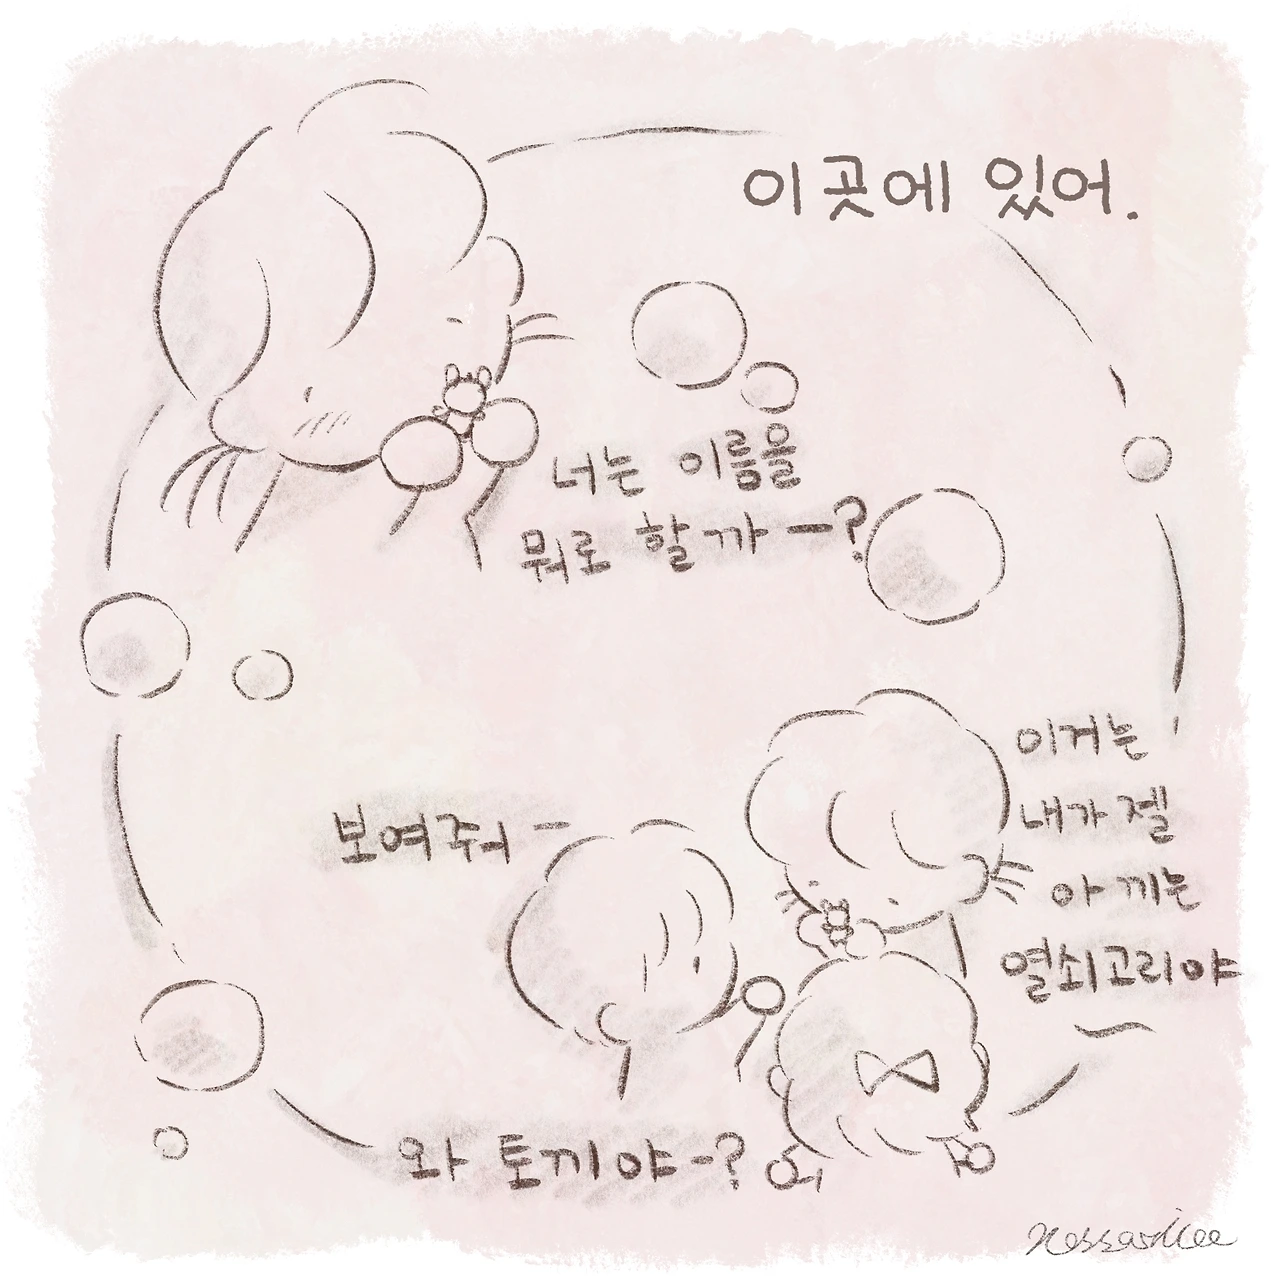 이곳에 있어.
너는 이름을
뭐로 할까 -?
이거는
내가 젤
아끼는
열쇠고리야
~
보여줘 -
와 토끼야-?